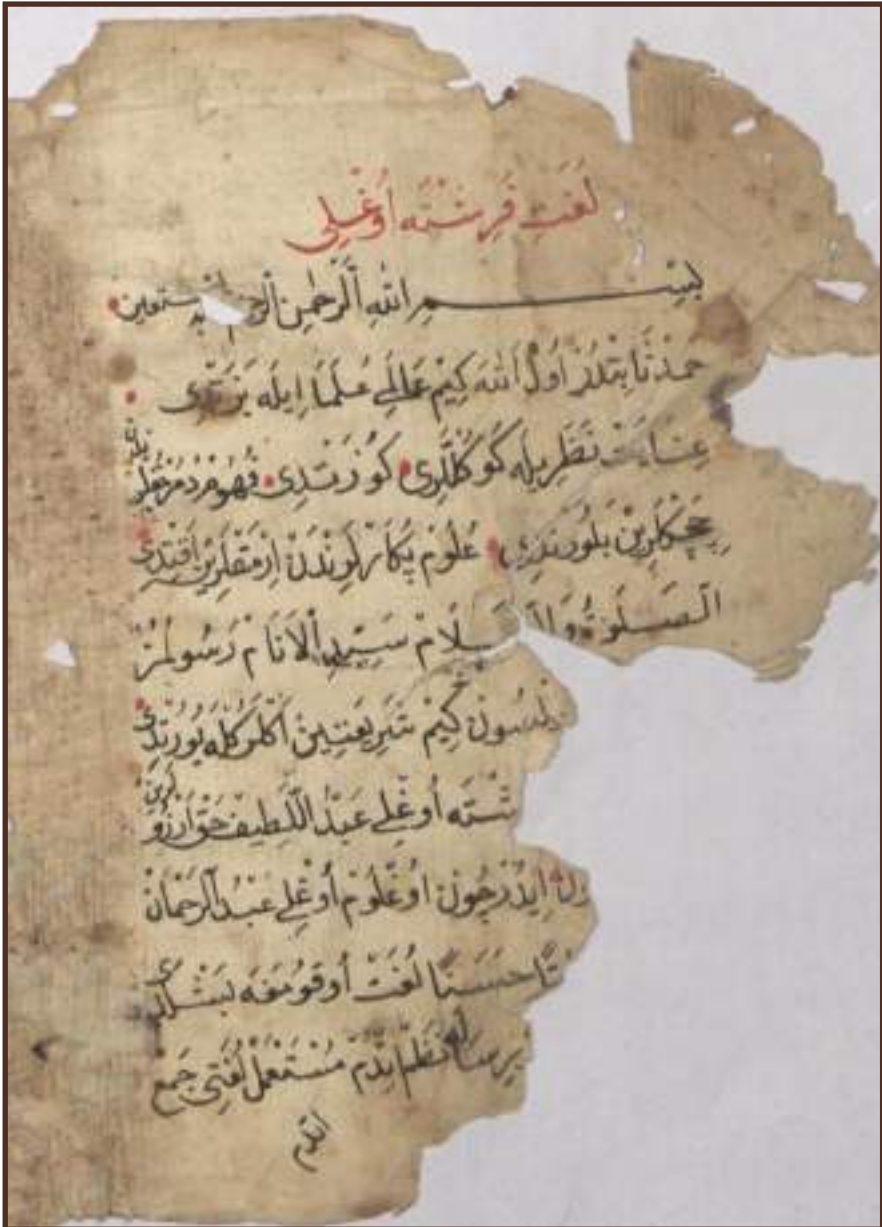 لُغَتِ فَرِشْتَه اُوغْلِى
بِسْمِ اللهِ اَلرَّحْمٰنِ الرحيم نستعين
حمد ثابتدر اول الله كيم عالمى علما ايله بزتدى
عنايت نظريله كوكللرى كوزتدى فهوم
چچكلرين بلورتدى علوم پكارلوندن ارمقلرين اقتدى
الصلوة والسلام سيد الانام رسولمز
اولسون كيم شريعتين اكلر كله يورتدى
شته اوغلى عبد اللطيف حق ارزولرين
ايدر چون اوغلوم اوغلى عبد الرحمان
تا حسنا لغت اوقومغه بشلدى
بر رساله نظم ايتدم مستعمل لغتى جمع
ايتدم